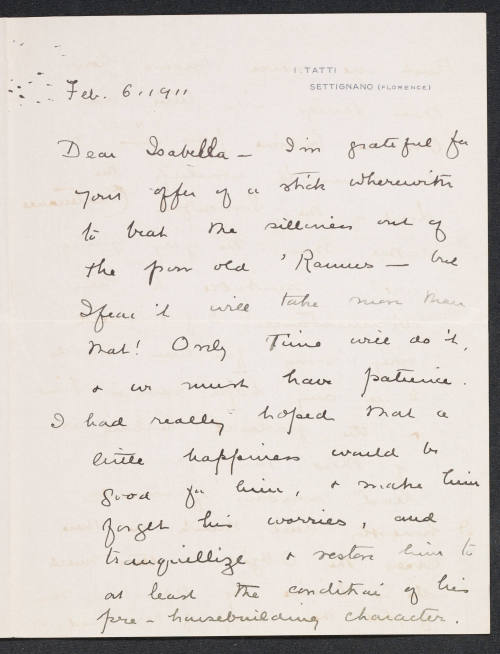 I. TATTI
SETTIGNANO (FLORENCE)
Feb. 6, 1911
Dear Isabella — I'm grateful for
your offer of a stick wherewith
to beat the silliness out of
the poor old — but
I fear it will take more than
that! Only Time will do it,
& we must have patience.
I had really hoped that a
little happiness would be
good for him, & make him
forget his worries, and
tranquillize & restore him to
at least the condition of his
pre-housebuilding character.